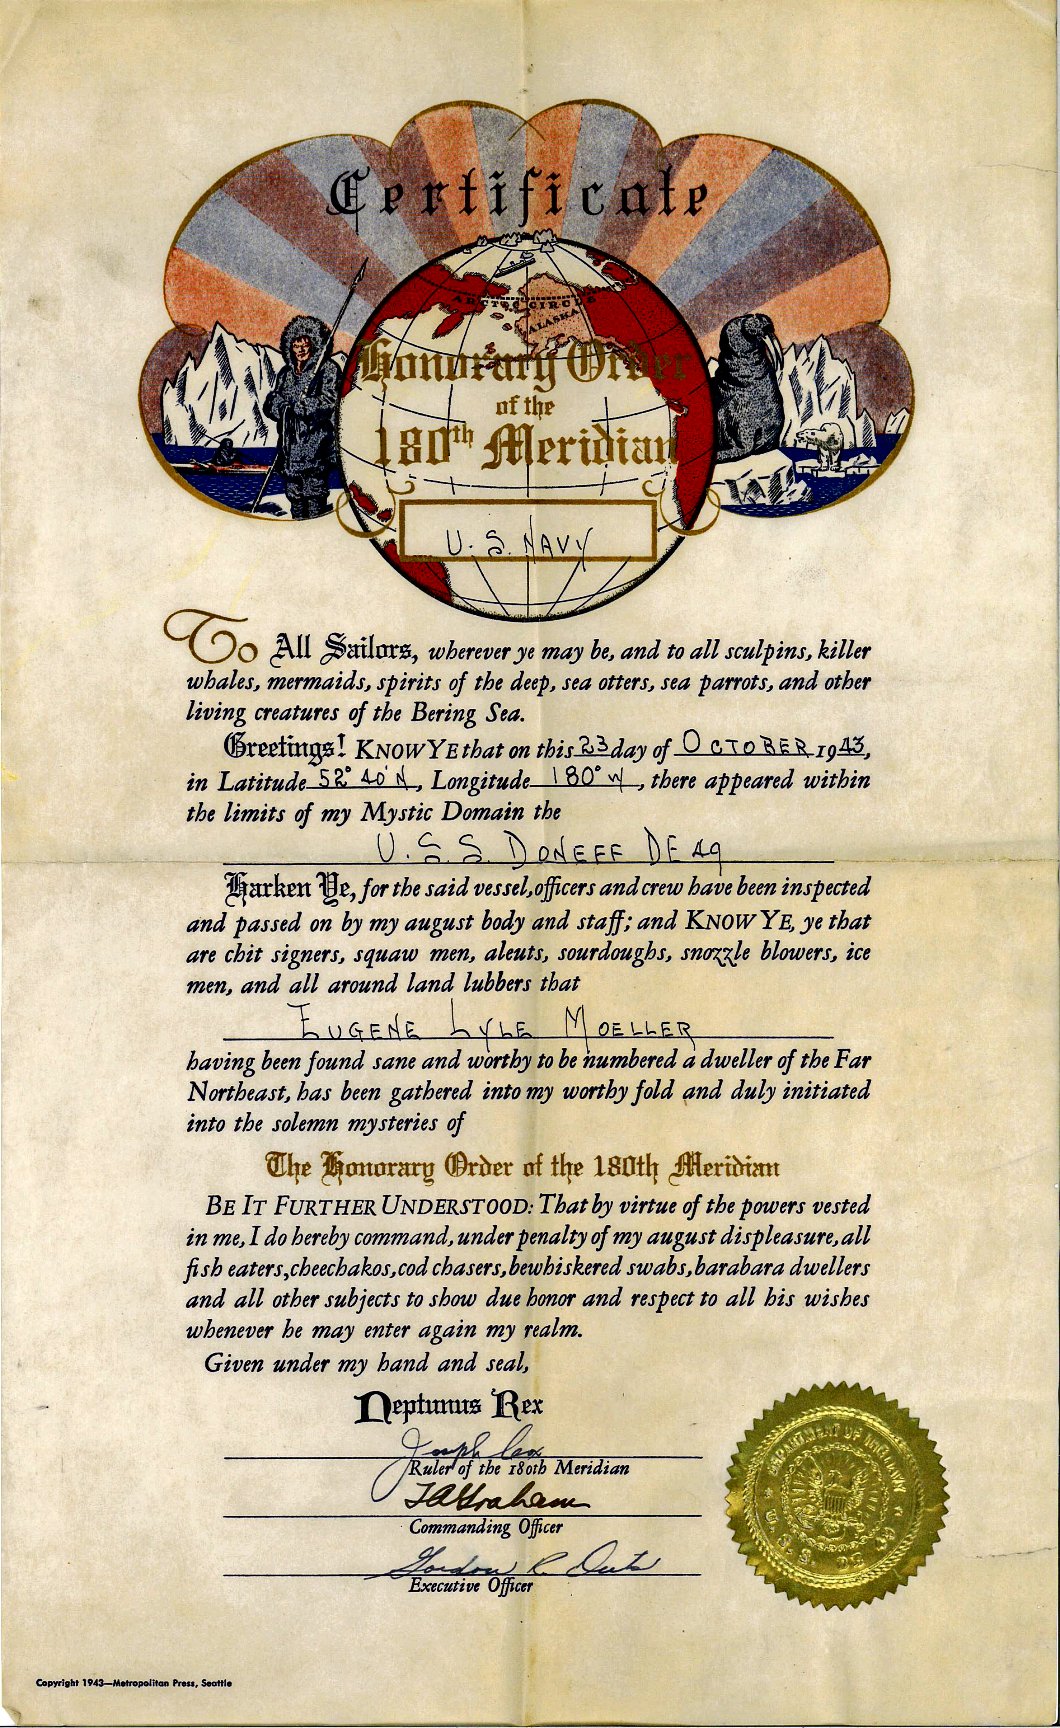 Certificate
ARCTIC CIRCLE
ALASKA
Honorary Order
of the
180th Meridian
U. S. NAVY
To All Sailors, wherever ye may be, and to all sculpins, killer
whales, mermaids, spirits of the deep, sea otters, sea parrots, and other
living creatures of the Bering Sea.
Greetings! KNOW YE that on this 23 day of OCTOBER 1943,
in Latitude 52° 40' N, Longitude 180° W, there appeared within
the limits of my Mystic Domain the
U. S. S. DONEFF DE 49
Harken Ye, for the said vessel, officers and crew have been inspected
and passed on by my august body and staff; and KNOW YE, ye that
are chit signers, squaw men, aleuts, sourdoughs, snozzle blowers, ice
men, and all around land lubbers that
EUGENE LYLE MOELLER
having been found sane and worthy to be numbered a dweller of the Far
Northeast, has been gathered into my worthy fold and duly initiated
into the solemn mysteries of
The Honorary Order of the 180th Meridian
BE IT FURTHER UNDERSTOOD: That by virtue of the powers vested
in me, I do hereby command, under penalty of my august displeasure, all
fish eaters, cheechakos, cod chasers, bewhiskered swabs, barabara dwellers
and all other subjects to show due honor and respect to all his wishes
whenever he may enter again my realm.
Given under my hand and seal,
Neptunus Rex
Joseph Cox
Ruler of the 180th Meridian
Graham
Commanding Officer
Gordon R
Executive Officer
DEPARTMENT OF THE NAVY
U. S. S.
Copyright 1943—Metropolitan Press, Seattle